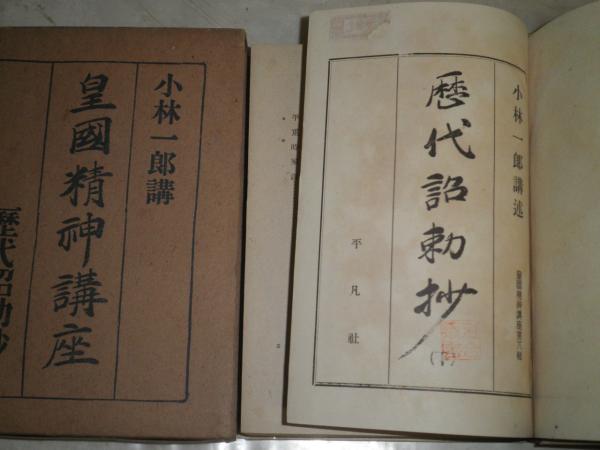 小林一郎講
皇國精神講座
歴代詔勅抄
小林一郎講述
皇國精神講座第六輯
歴代詔勅抄
平凡社